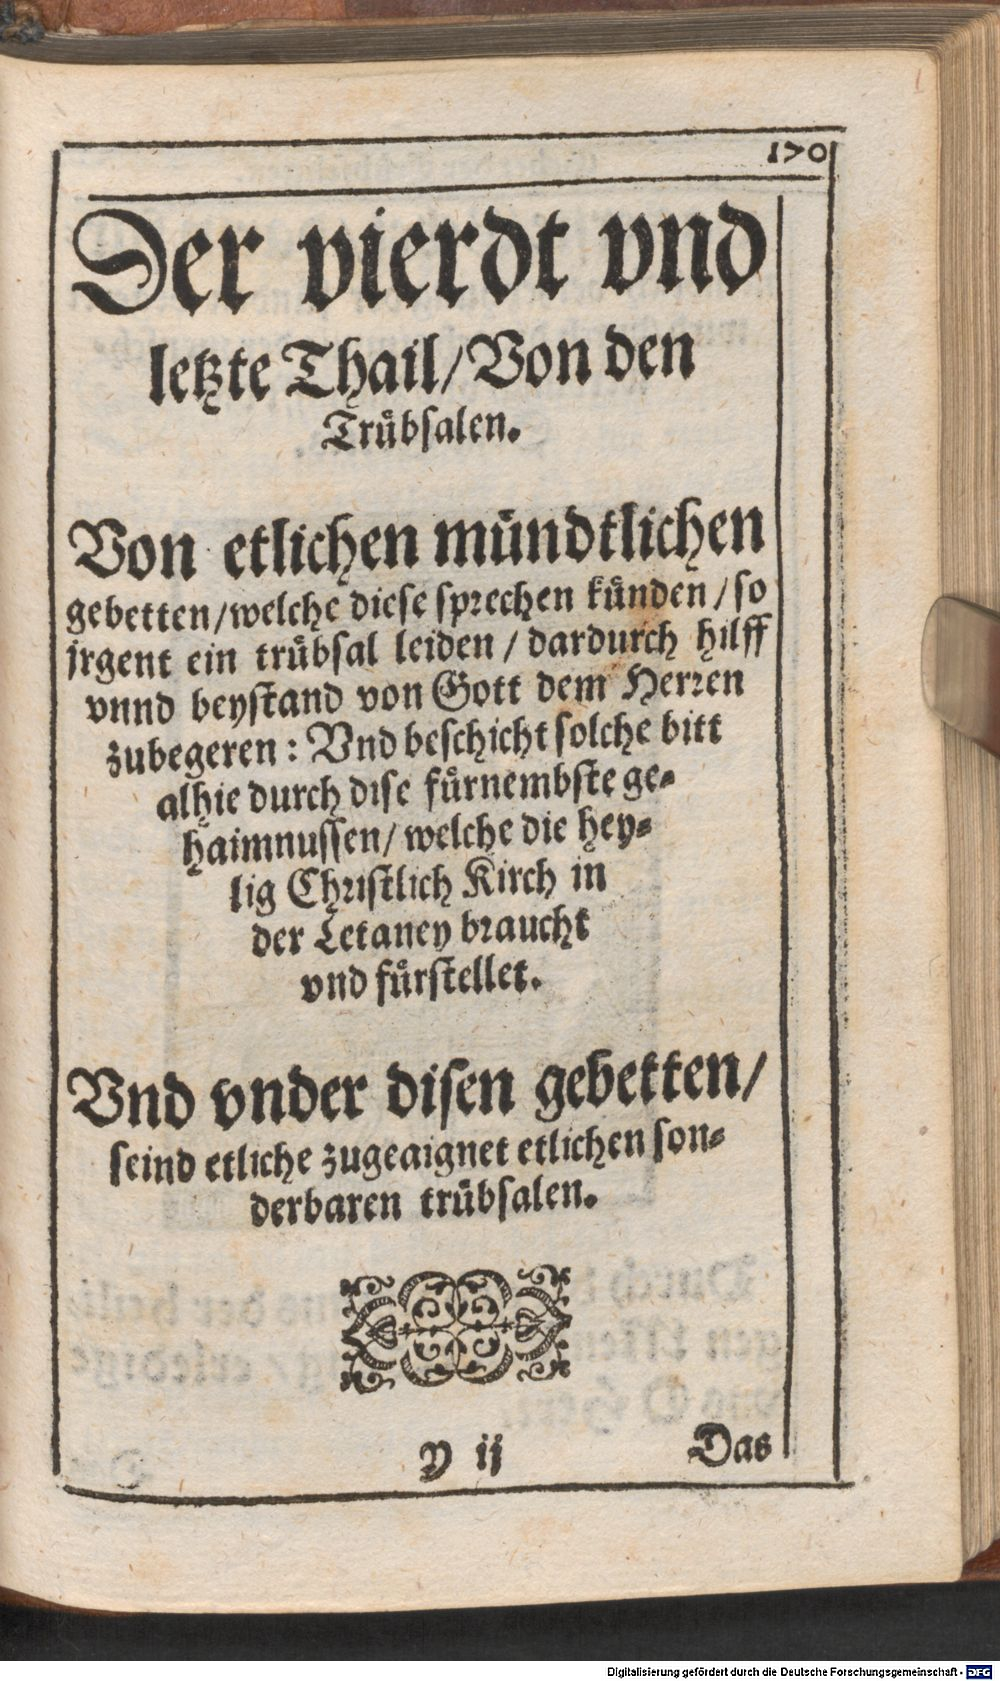 170
Der vierdt vnd
letzte Thail/Von den
Trůbsalen.
Von etlichen můndtlichen
gebetten/welche diese sprechen kůnden/so
jrgent ein trůbsal leiden/dardurch hilff
vnnd beystand von Gott dem Herren
zubegeren: Vnd beschicht solche bitt
alhie durch dise fůrnembste ge-
haimnussen/welche die hey-
lig Christlich Kirch in
der Letaney braucht
vnd fůrstellet.
Vnd vnder disen gebetten/
seind etliche zugeaignet etlichen son-
derbaren trůbsalen.
Y ij
Das
Digitalisierung gefördert durch die Deutsche Forschungsgemeinschaft - DFG